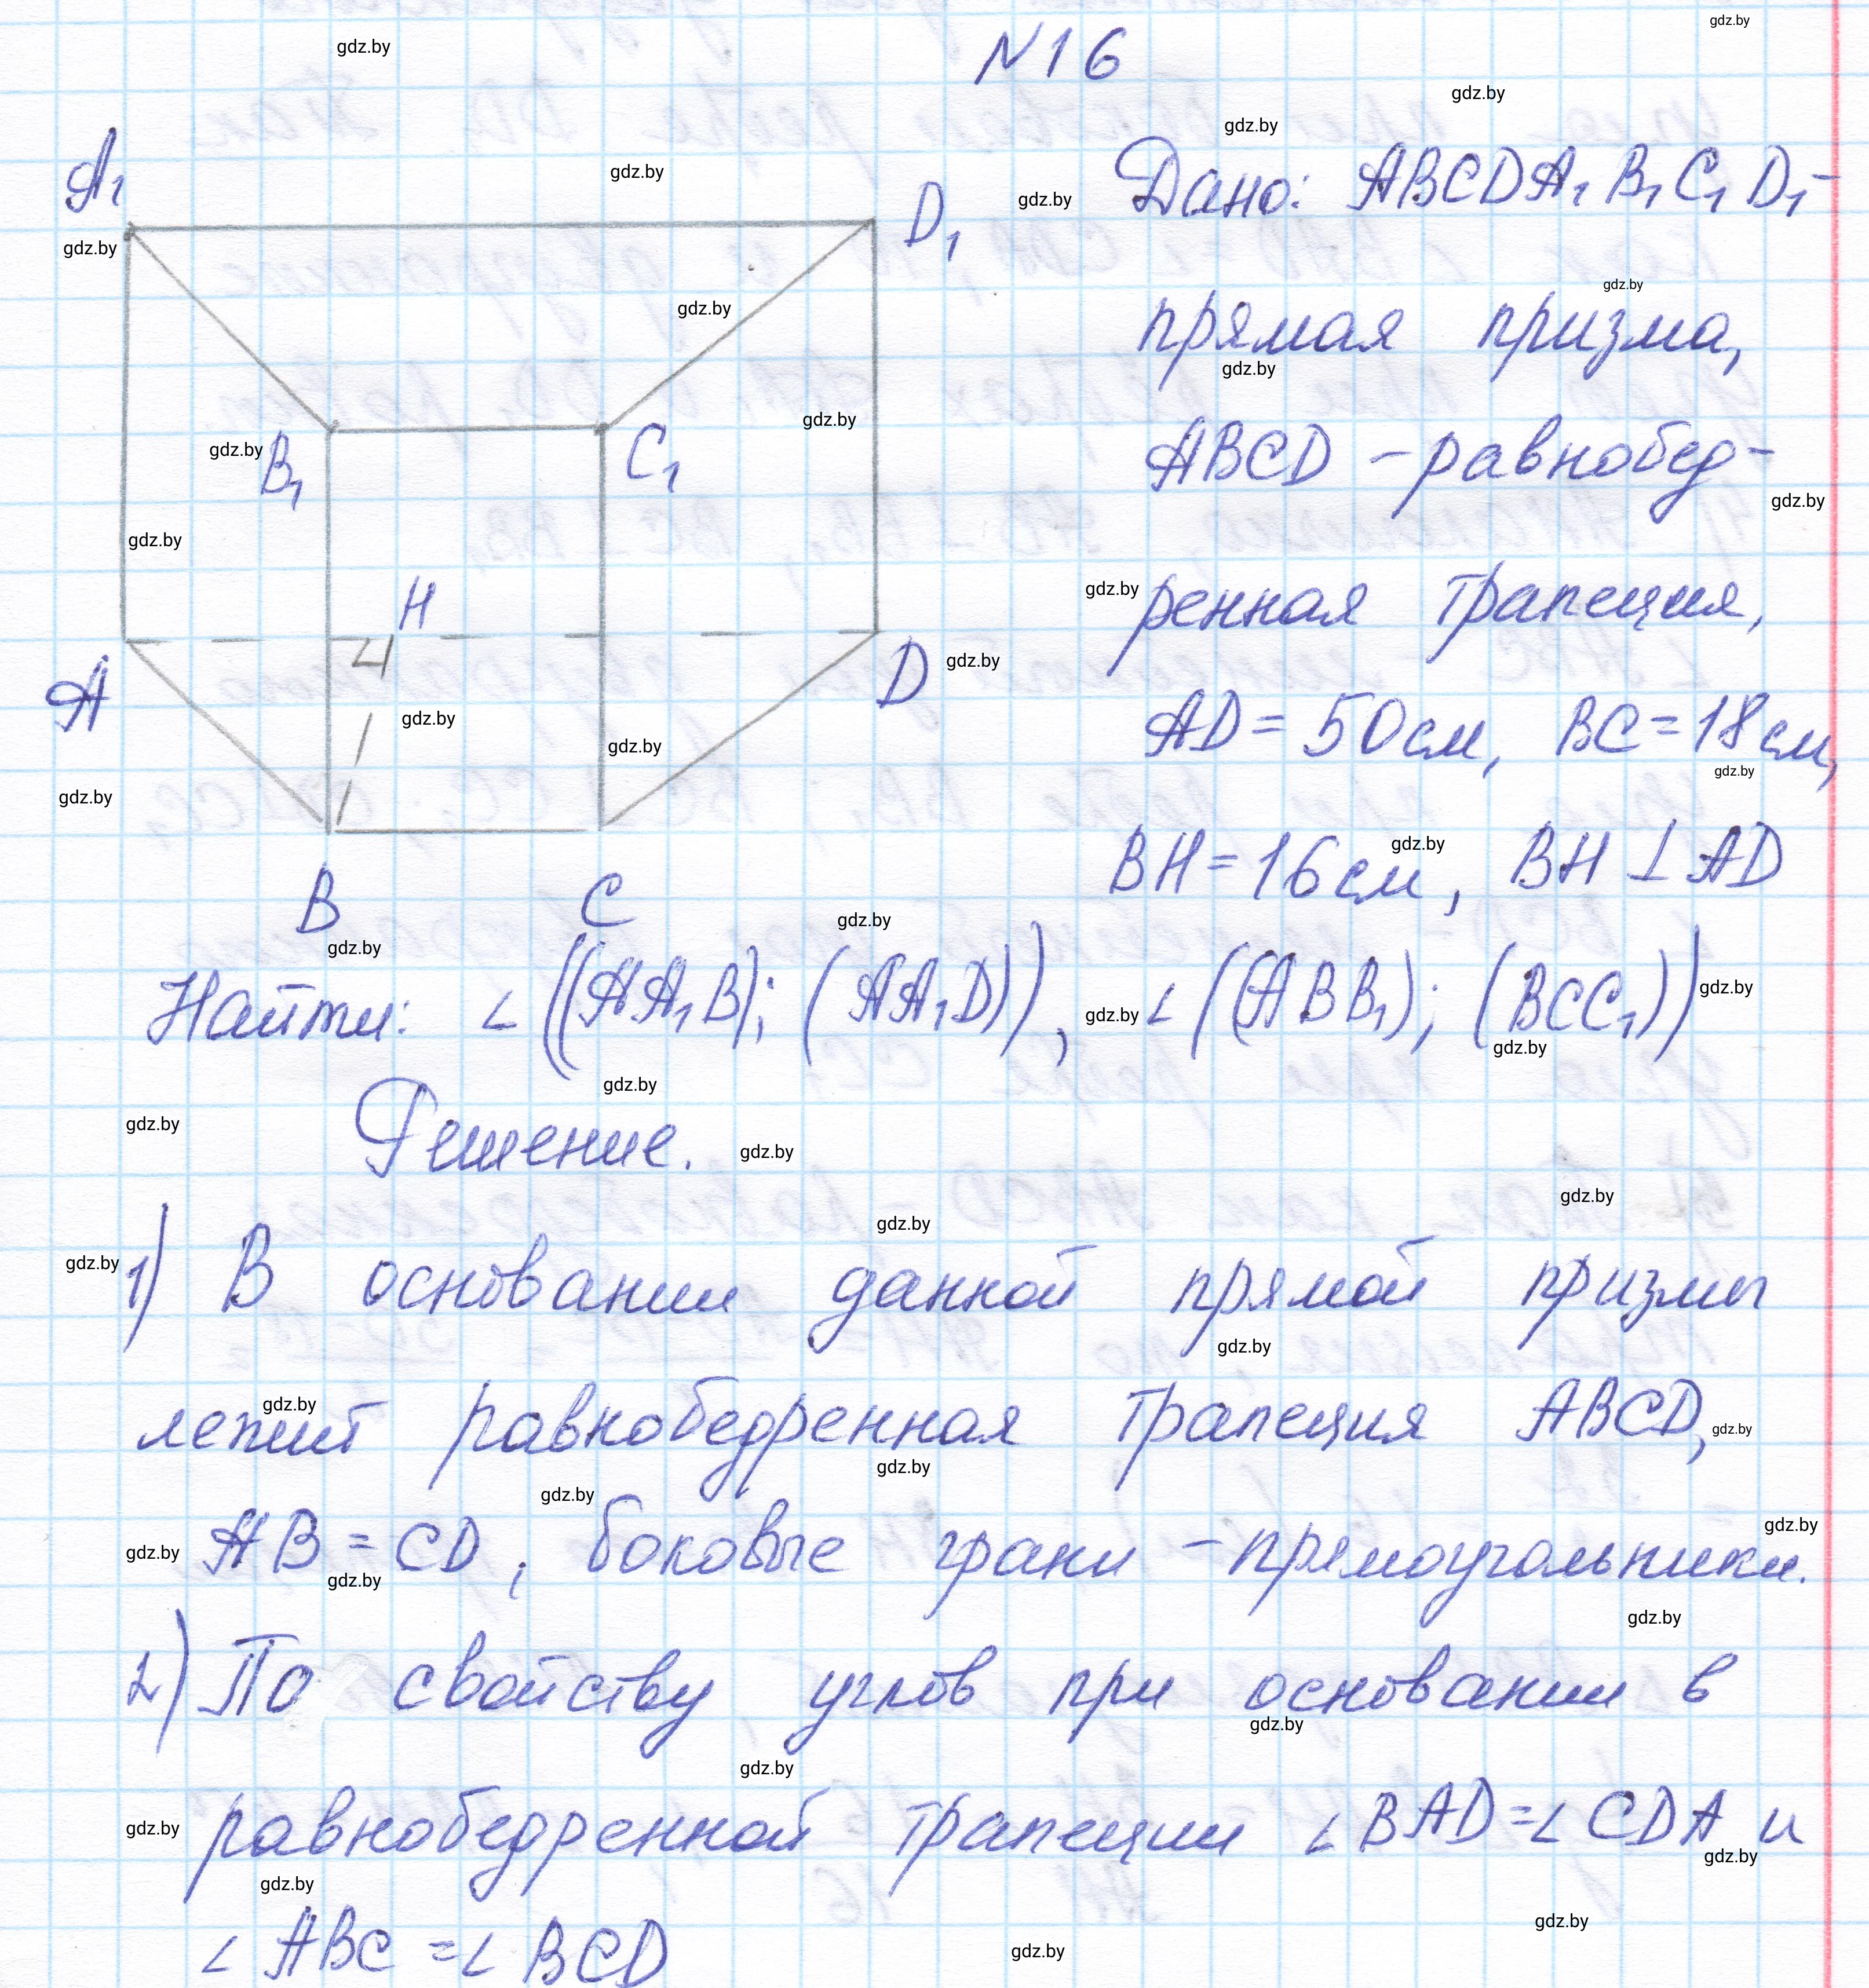 N16
Дано: ABCDA₁B₁C₁D₁ –
прямая призма,
ABCD – равнобед-
ренная трапеция,
AD = 50 см, BC = 18 см,
BH = 16 см, BH ⊥ AD
A₁
D₁
B₁
C₁
H
A
D
B
C
Найти: ∠((AA₁B); (AA₁D)), ∠((ABB₁); (BCC₁))
Решение.
1) В основании данной прямой призмы
лежит равнобедренная трапеция ABCD,
AB = CD, боковые грани – прямоугольники.
2) По свойству углов при основании в
равнобедренной трапеции ∠BAD = ∠CDA и
∠ABC = ∠BCD
gdz.by